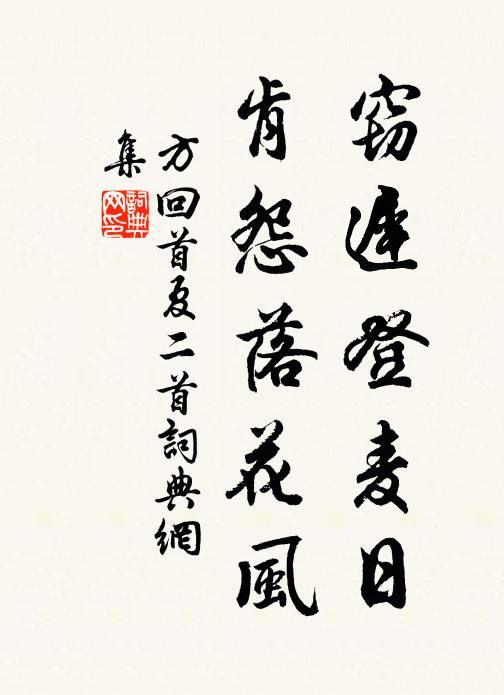 窃遲登麦日
肯怨落花風
方回首夏二首詞典網
集
詞典网印